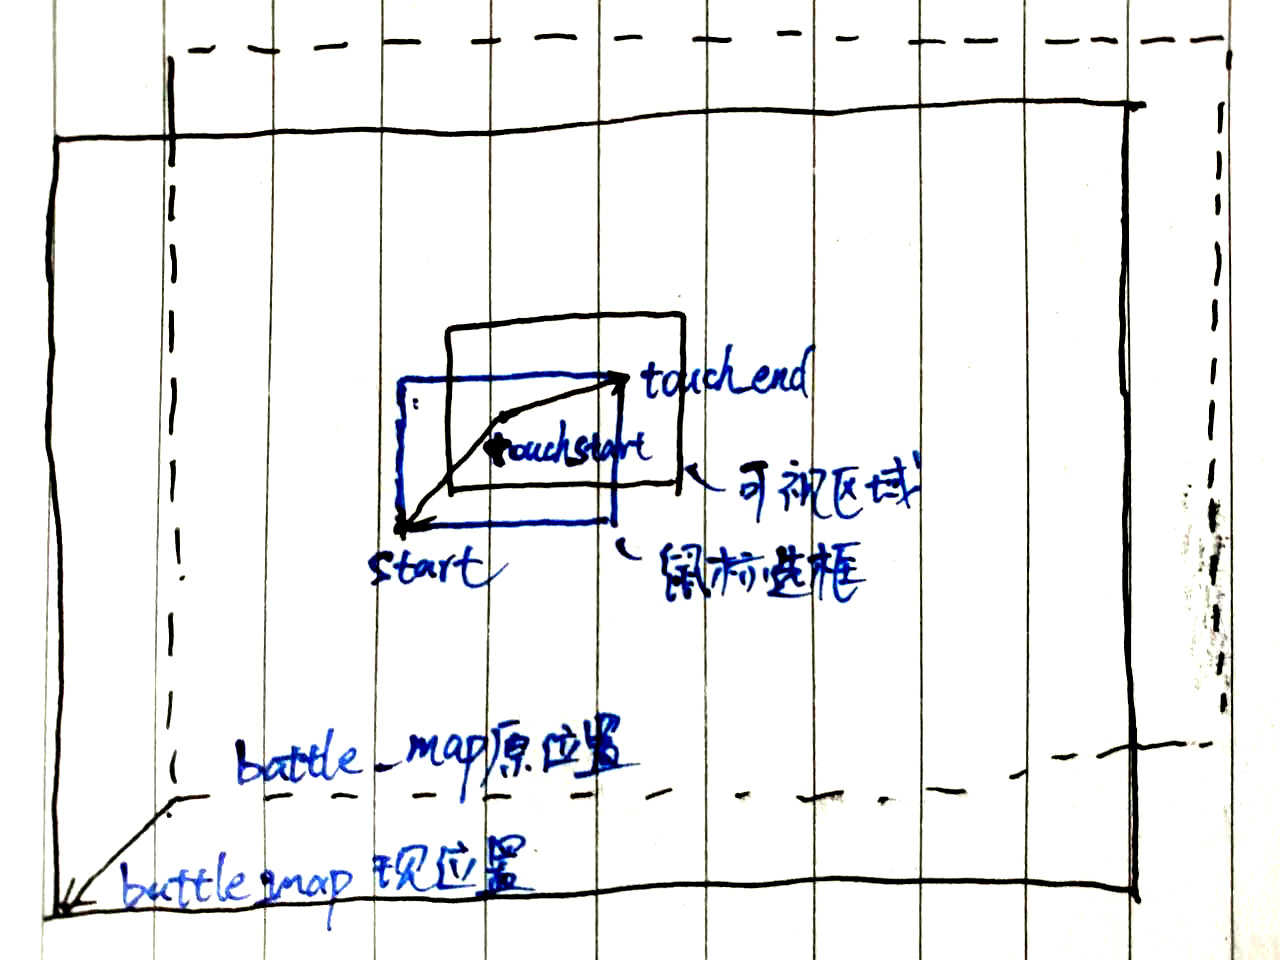 touch_end
touch_start
可视区域
start
鼠标选框
battle_map原位置
battle_map 现位置